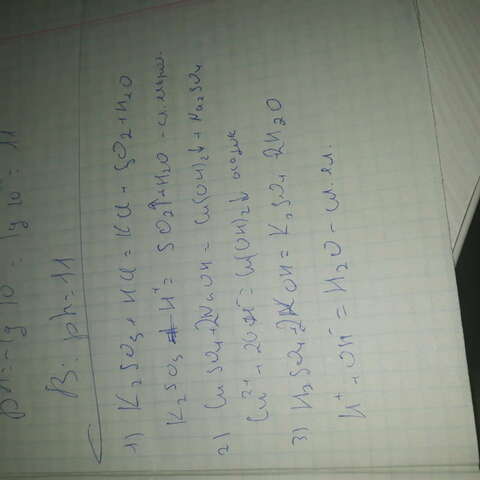 pH = -lg 10 = lg 10 = 11
В: ph = 11
1) K₂SO₃ + HCl = KCl + SO₂ + H₂O
K₂SO₃ + H⁺ = SO₂↑ + H₂O -
2) CuSO₄ + 2NaOH = Cu(OH)₂↓ + Na₂SO₄
Cu²⁺ + 2OH⁻ = Cu(OH)₂↓ осадок
3) H₂SO₄ + 2KOH = K₂SO₄ 2H₂O
H⁺ + OH⁻ = H₂O - сл. эл.